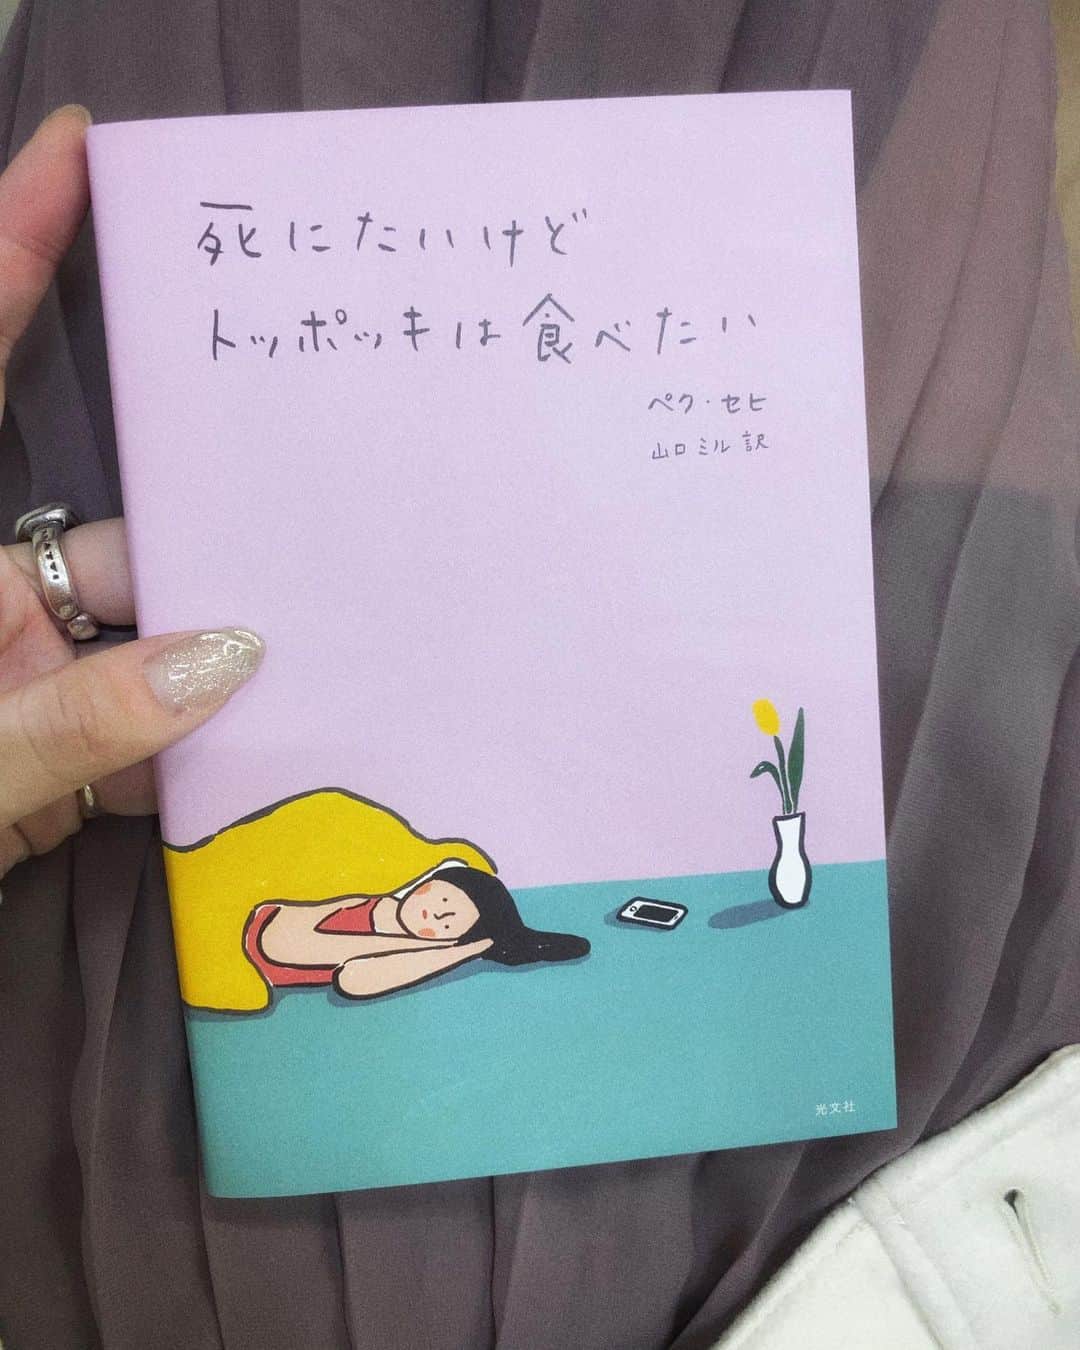 死にたいけど
トッポッキは食べたい
ペク・セヒ
山口ミル 訳
光文社